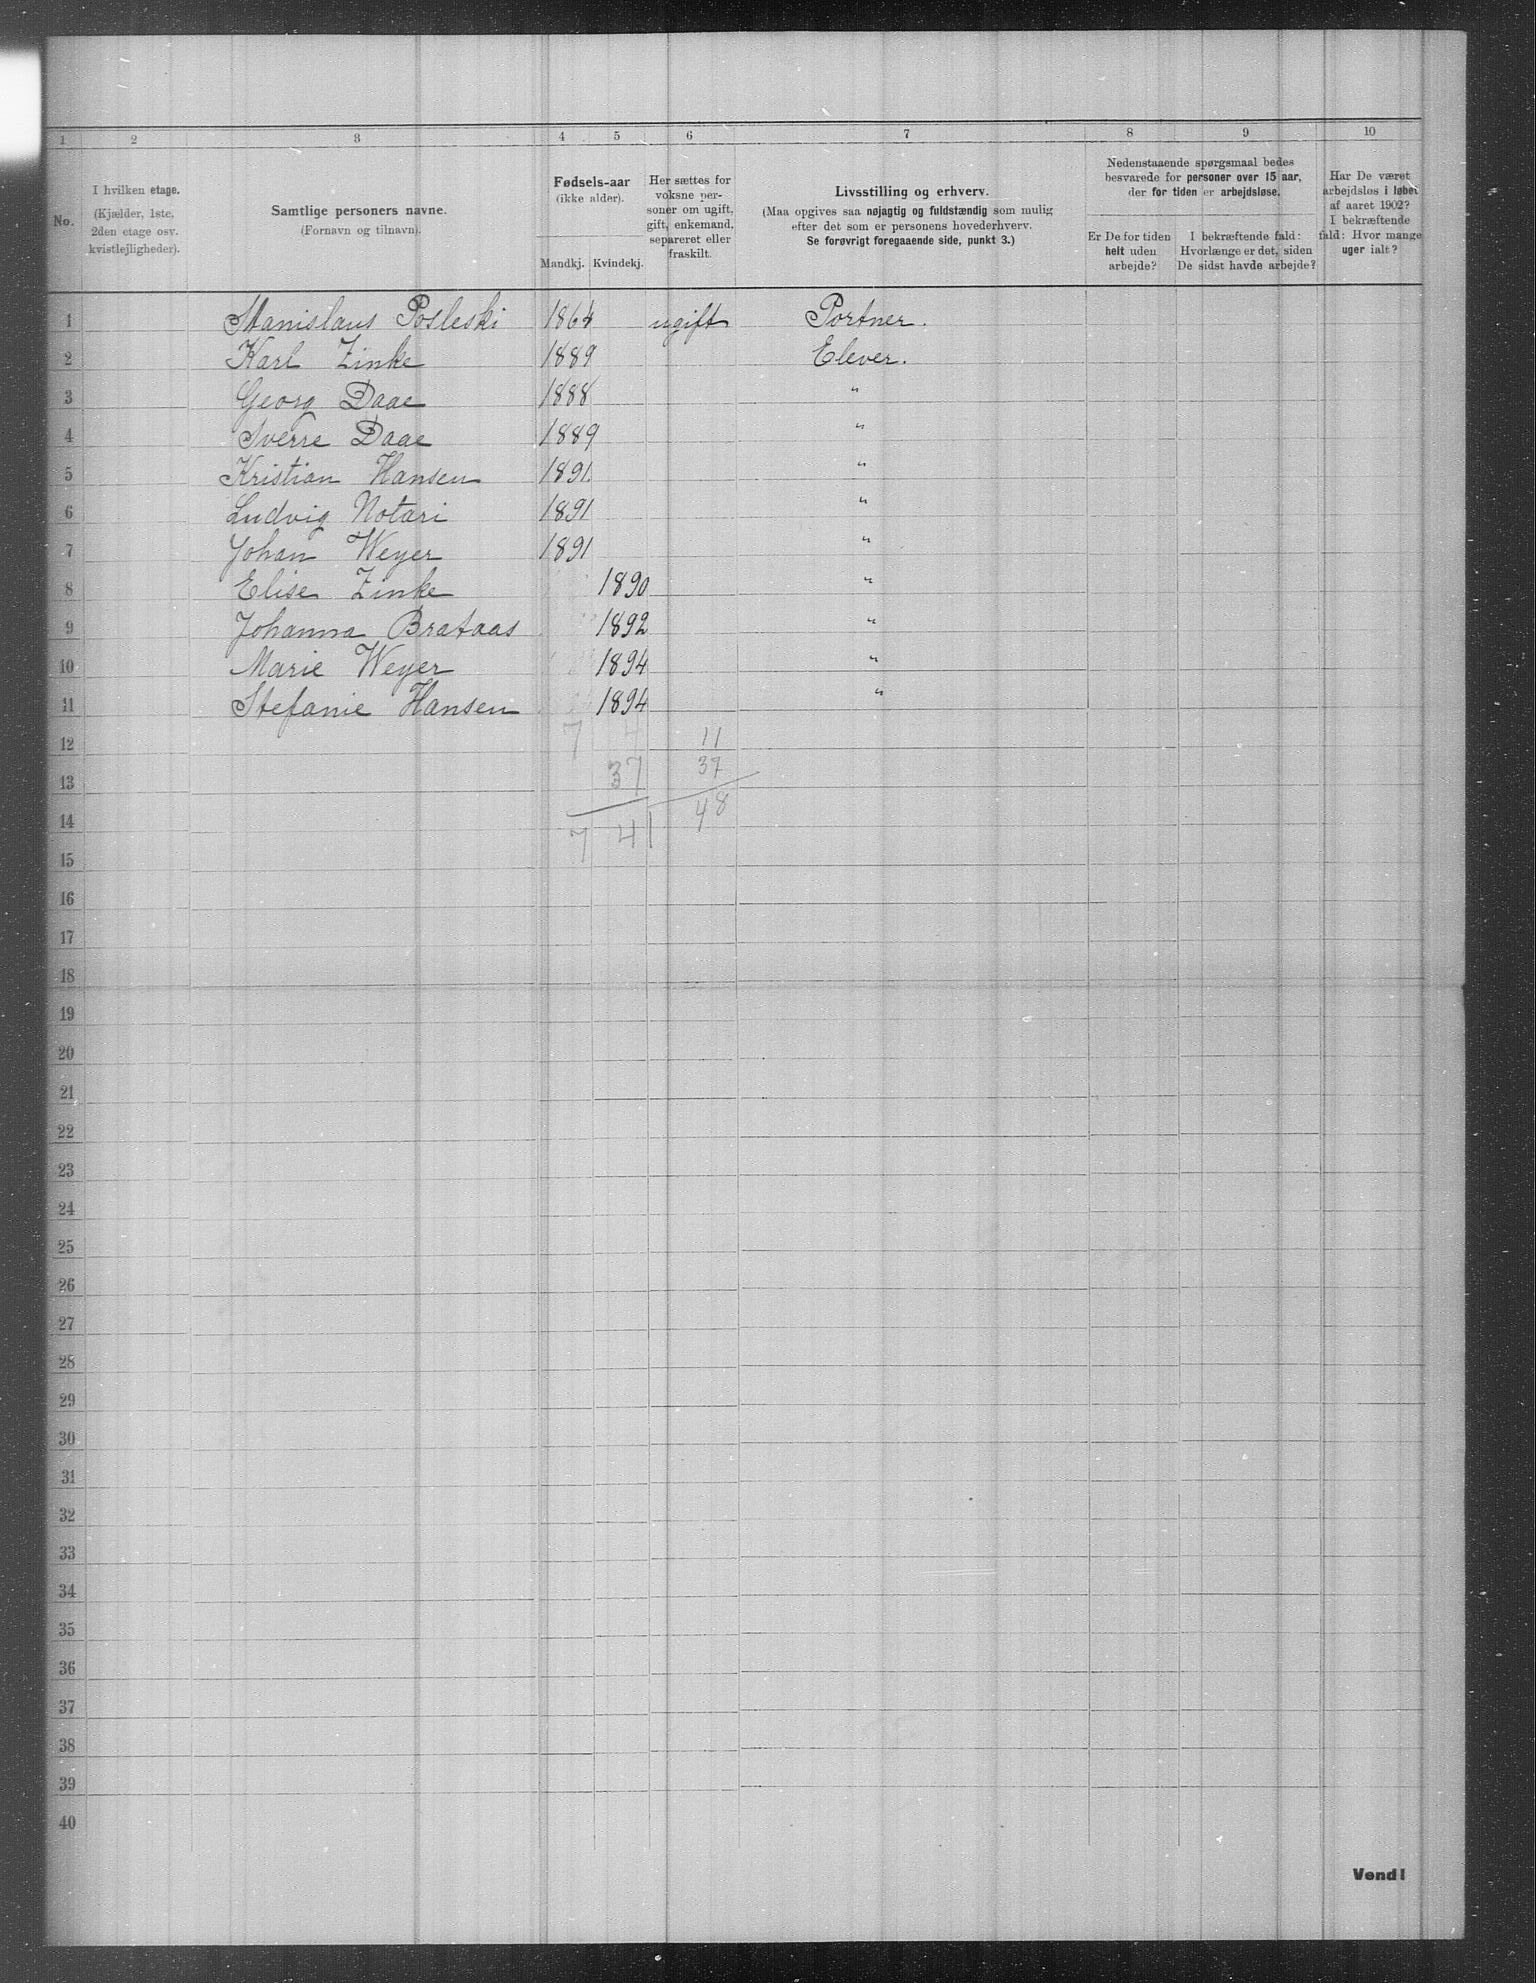 1 2 3 4 5 6 7 8 9 10
No.
I hvilken etage.
(Kjælder, 1ste,
2den etage osv.
kvistlejligheder).
Samtlige personers navne.
(Fornavn og tilnavn).
Fødsels-aar
(ikke alder).
Mandkj. Kvindekj.
Her sættes for
voksne per-
soner om ugift,
gift, enkemand,
separeret eller
fraskilt.
Livsstilling og erhverv.
(Maa opgives saa nøjagtig og fuldstændig som mulig
efter det som er personens hovederhverv.
Se forøvrigt foregaaende side, punkt 3.)
Nedenstaaende spørgsmaal bedes
besvarede for personer over 15 aar,
der for tiden er arbejdsløse.
Er De for tiden
helt uden
arbejde?
I bekræftende fald:
Hvorlænge er det, siden
De sidst havde arbejde?
Har De været
arbejdsløs i løbet
af aaret 1902?
I bekræftende
fald: Hvor mange
uger ialt?
1 Stanislaus Posleski 1864 ugift Portner.
2 Karl Zinke 1889 Elever.
3 Georg Daae 1888 "
4 Sverre Daae 1889 "
5 Kristian Hansen 1891 "
6 Ludvig Notari 1891 "
7 Johan Weyer 1891 "
8 Elise Zinke 1890 "
9 Johanna Brataas 1892 "
10 Marie Weyer 1894 "
11 Stefanie Hansen 1894 "
12 7 4 11
13 37 37
14 7 41 48
15
16
17
18
19
20
21
22
23
24
25
26
27
28
29
30
31
32
33
34
35
36
37
38
39
40
Vend!